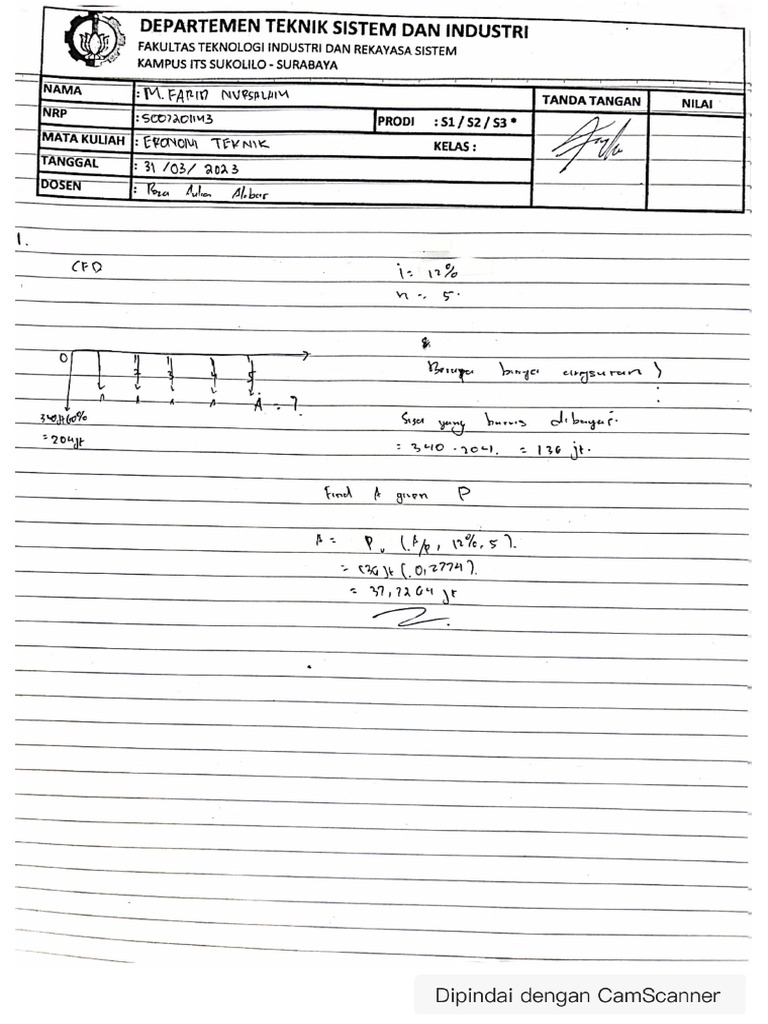 DEPARTEMEN TEKNIK SISTEM DAN INDUSTRI
FAKULTAS TEKNOLOGI INDUSTRI DAN REKAYASA SISTEM
KAMPUS ITS SUKOLILO - SURABAYA
NAMA : M. FARID NURSALAIM
TANDA TANGAN
NILAI
NRP : 5007201143
PRODI : S1 / S2 / S3 *
MATA KULIAH : EKONOMI TEKNIK
KELAS :
TANGGAL : 31 /03/ 2023
DOSEN :
1.
CFD
i = 12%
n = 5.
0 1 2 3 4 5
A = ?
340jt 60%
= 204jt
Berapa angsuran ?
Sisa yang harus dibayar.
= 340 - 204. = 136 jt.
Find A given P
A = P (A/P, 12%, 5).
= 136 jt (0,2774).
= 37,7264 jt
Dipindai dengan CamScanner